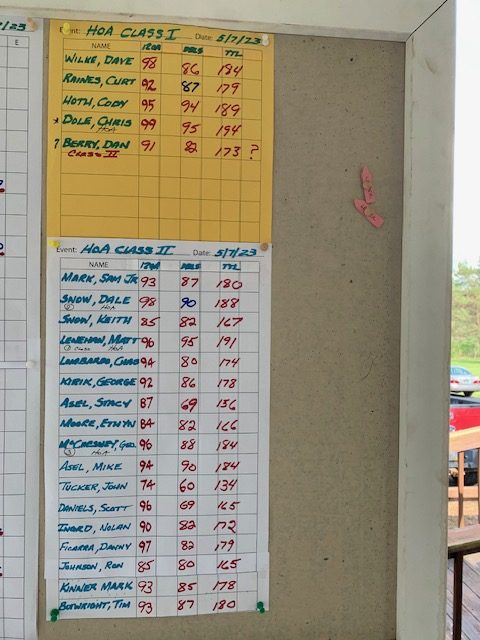 /23
E
Event: HOA CLASS I Date: 5/7/23
NAME 12GA DBLS TTL
WILKE, DAVE 98 86 184
RAINES, CURT 92 87 179
HOTH, CODY 95 94 189
* DOLE, CHRIS 99 95 194
HOA
? BERRY, DAN 91 82 173 ?
CLASS II
Event: HOA CLASS II Date: 5/7/23
NAME 12GA DBLS TTL
MARK, SAM JR 93 87 180
SNOW, DALE 98 90 188
HOA
SNOW, KEITH 85 82 167
LENEHAN, MATT 96 95 191
CLASS HOA
LOMBARDO, CHAS 94 80 174
KIRIK, GEORGE 92 86 178
ASEL, STACY 87 69 156
MOORE, ETHYN 84 82 166
McCARSNEY, GEO. 96 88 184
HOA
ASEL, MIKE 94 90 184
TUCKER, JOHN 74 60 134
DANIELS, SCOTT 96 69 165
INGRD, NOLAN 90 82 172
FICARRA, DANNY 97 82 179
JOHNSON, RON 85 80 165
KINNER MARK 93 85 178
BOTWRIGHT, TIM 93 87 180